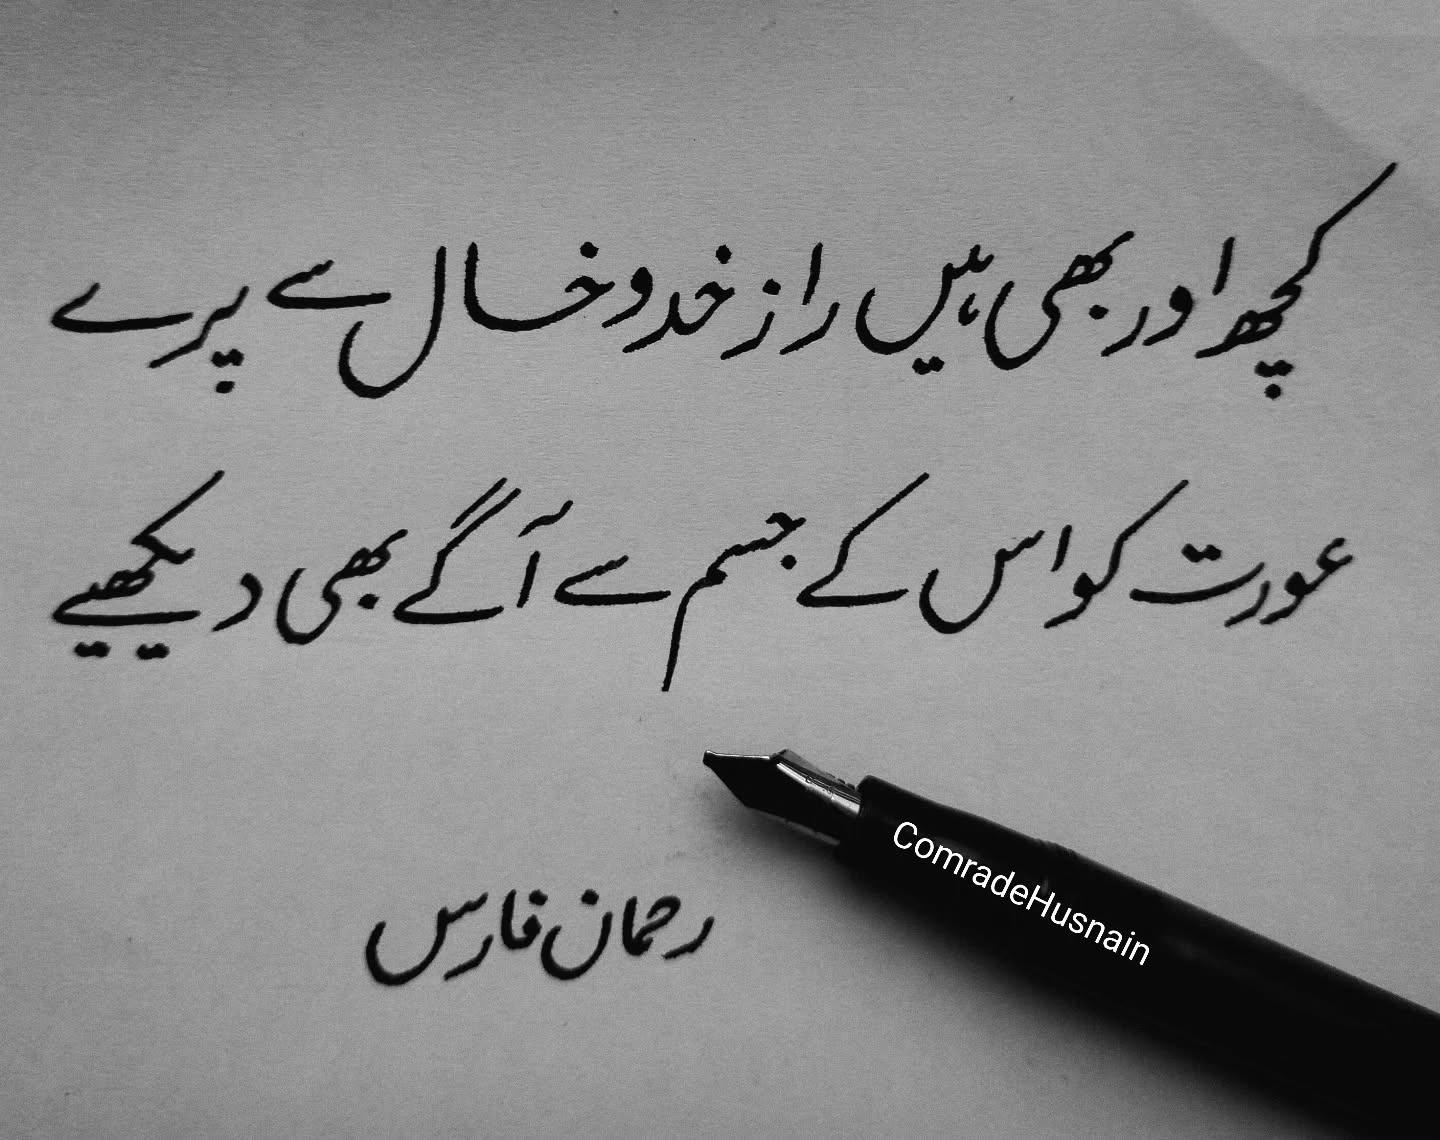 کچھ اور بھی ہیں راز خدوخال سے پرے
عورت کو اس کے جسم سے آگے بھی دیکھیے
رحمان فارس
ComradeHusnain